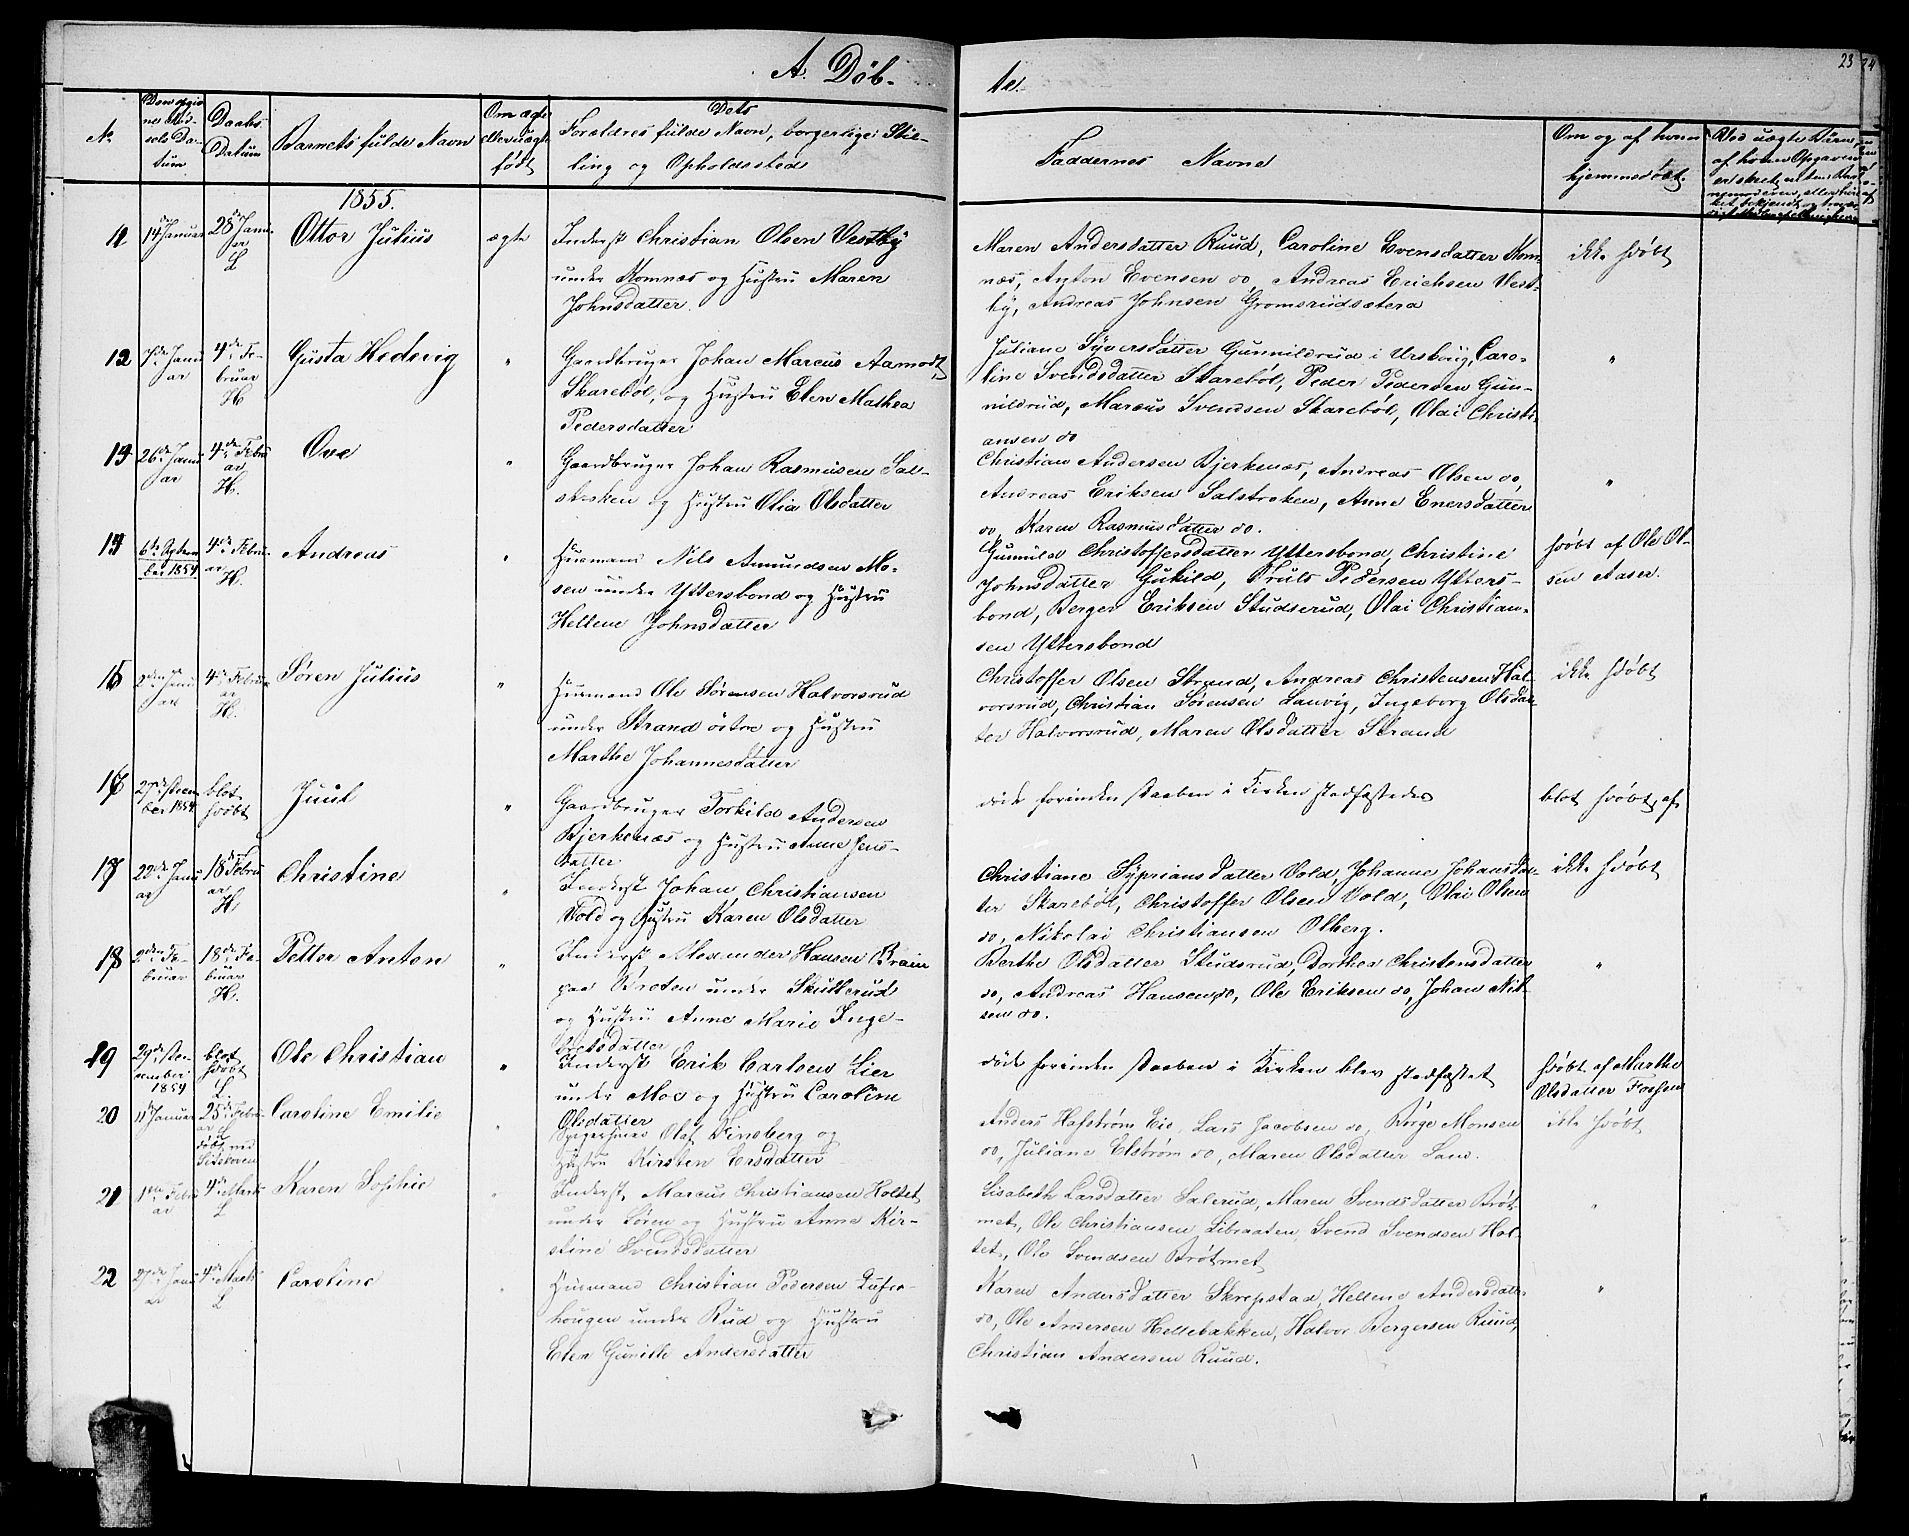 A. Døb-
te.
23
No
Den opgivne Fødsels Datum
Daabs Datum
Barnets fulde Navn
Om ægte eller uægte født
Dets
Forældres fulde Navn, borgerlige Stilling og Opholdssted
Faddernes Navne
Om og af hvem hjemmedøbt.
1855.
11 14de Januar 28de Januar L Ottor Julius ægte
Inderst Christian Olsen Vestby
under Komnæs og Hustru Maren
Johnsdatter.
Maren Andersdatter Ruud, Caroline Evensdatter Kom-
næs, Anton Evensen do, Andreas Erichsen Vest-
by, Andreas Johnsen Gromsrudsætera
ikke hjdøbt
12 7de Januar 4de Februar H Gusta Hedevig "
Gaardbruger Johan Marcus Aamodt
Skarebøl, og Hustru Elen Mathea
Pedersdatter
Juliane Syversdatter Gunnildrud i Urskoug, Caro-
line Svendsdatter Skarebøl, Peder Pedersen Gun-
nildrud, Marcus Svendsen Skarebøl, Olai Christi-
ansen do
"
13 26de Januar 4de Februar H. Ove "
Gaardbruger Johan Rasmusen Sal-
streken og Hustru Olia Olsdatter
Christian Andersen Bjerkenæs, Andreas Olsen do,
Andreas Eriksen Salstreken, Anne Enersdatter
do, Karen Rasmusdatter do.
"
14 6te September 1854 4de Februar H. Andreas "
Huusmand Nils Amundsen Mo-
sen under Yttersbond og Hustru
Hellene Johnsdatter
Gunnild Christoffersdatter Yttersbond, Christine
Johnsdatter Gukild, Truls Pedersen Ytters-
bond, Berger Eriksen Studserud, Olai Christian-
sen Yttersbond
hjdøbt af Ole Ol-
sen Aasen.
15 2den Januar 4de Februar H. Søren Julius "
Huusmand Ole Sørensen Halvorsrud
under Strand østre og Hustru
Marthe Johannesdatter
Christoffer Olsen Strand, Andreas Christensen Hal-
vorsrud, Christian Sørensen Lauvig, Ingeborg Olsdat-
ter Halvorsrud, Maren Olsdatter Strand
ikke hjdøbt
16 27de Decem-
ber 1854 blot hjdøbt Juul "
Gaardbruger Torkild Andersen
Bjerkenæs og Hustru Anne Jens-
datter
døde forinden Daaben i Kirken stadfæstedes
blot hjdøbt af
17 22de Januar 18de Februar H. Christine "
Inderst Johan Christiansen
Vold og Hustru Karen Olsdatter
Christiane Sypriansdatter Vold, Johanne Johansdat-
ter Skarebøl, Christoffer Olsen Vold, Olai Olsen
do, Nikolai Christiansen Olberg.
ikke hjdøbt
18 2den Februar 18de Februar H. Petter Anton "
Inderst Alexander Hansen Brain
paa Broten under Skullerud
og Hustru Anne Marie Inge-
bretsdatter
Berthe Olsdatter Studsrud, Dorthea Christensdatter
do, Andreas Hansen do, Ole Eriksen do, Johan Nil-
sen do.
"
19 29de December 1854 blot hjdøbt L. Ole Christian "
Inderst Erik Carlsen Lier
under Moe og Hustru Caroline
Olsdatter
døde forinden Daaben i Kirken blev stadfæstet
hjdøbt af Marthe
Olsdatter Fossen
20 11te Januar 25de Februar døbt ved Sideskoven Caroline Emilie "
Olaf Finsberg og
Hustru Kirsten Ersdatter
Anders Hafstrøm Eie, Lars Jacobsen do, Børge Monsen
do, Juliane Elstrøm do, Maren Olsdatter Lund.
ikke hjdøbt
21 1ste Februar 4de Marts L Karen Sophie "
Inderst, Marcus Christiansen Holtet
under Søren og Hustru Anne Kir-
stine Svendsdatter
Lisabeth Larsdatter Salerud, Maren Svendsdatter Brøt-
met, Ole Christiansen Libraaten, Svend Svendsen Hol-
tet, Ole Svendsen Brøtmet
"
22 27de Januar 4de Marts L Caroline "
Huusmand Christian Pedersen Tufse-
hougen under Rud og Hustru
Elen Gunille Andersdatter
Karen Andersdatter Skrepstad, Hellene Andersdatter
do, Ole Andersen Hellebækken, Halvor Bergersen Ruud,
Christian Andersen Ruud.
"